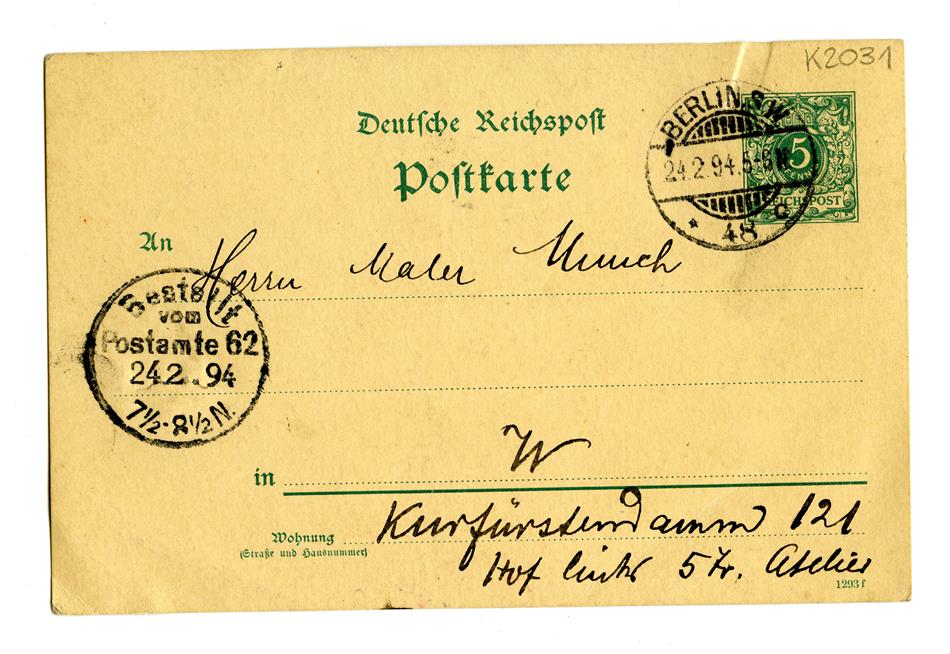 K2031
Deutsche Reichspost
Postkarte
BERLIN, S.W.
24.2.94.5-6N.
* 48 c
5
PFENNIG
REICHSPOST
An
Herrn Maler Munch
Bestellt
vom
Postamte 62
24.2.94
7½-8½N.
W
in
Kurfürstendamm 121
Wohnung
(Straße und Hausnummer)
Hof links 5 Tr. Atelier
1293 f